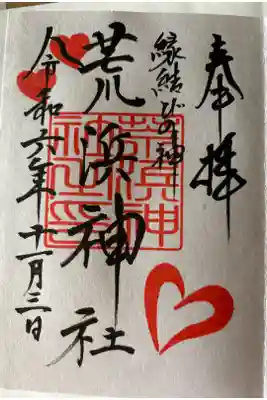 奉拝
縁結びの神
荒浜神社
令和六年十一月三日